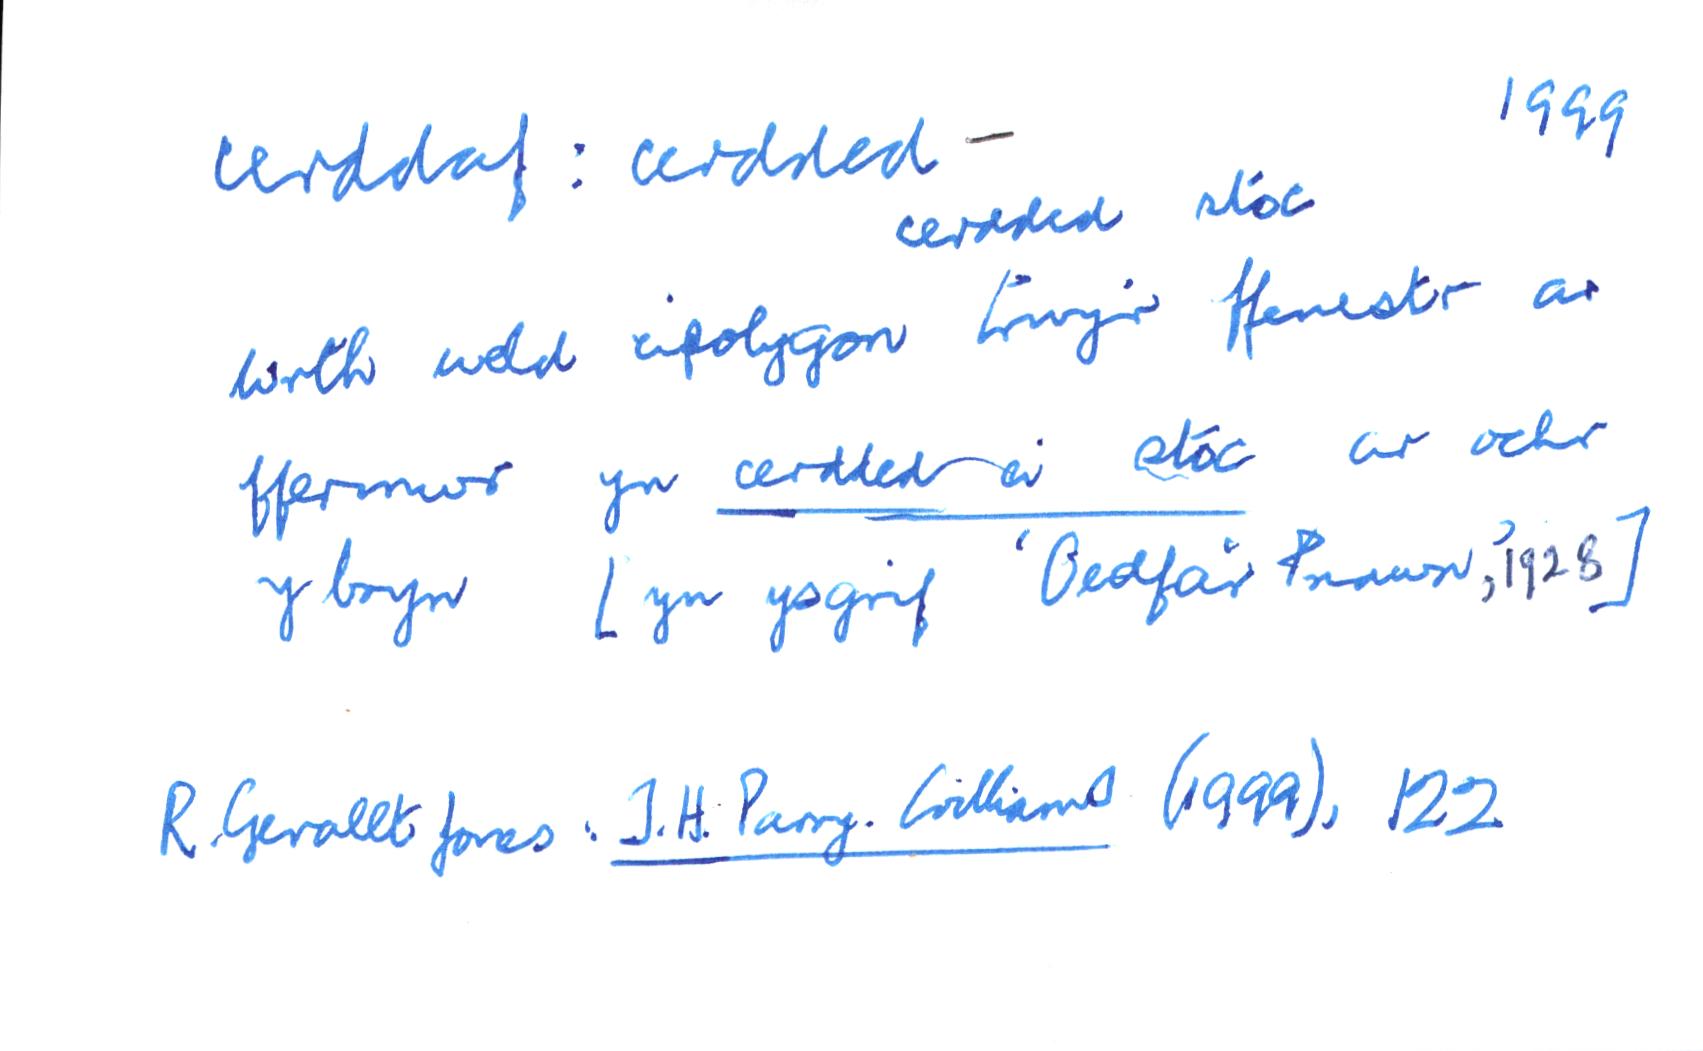 1999
cerddaf : cerdded –
cerdded stoc
wrth weld cipolygon trwy'r ffenestr ar
ffermwr yn cerdded ei stoc ar ochr
y bryn [yn ysgrif 'Oedfa'r Pnawn,' 1928]
R. Gerallt Jones : T.H. Parry-Williams (1999), 122